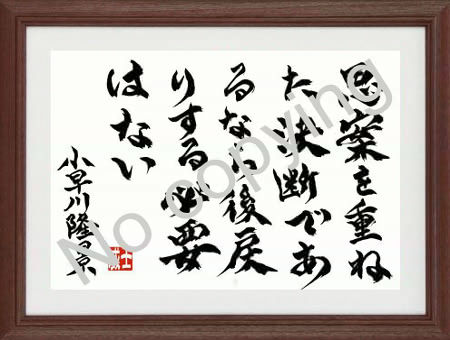 思案を重ね
た決断であ
るなら後戻
りする必要
はない
小早川隆景
No copying